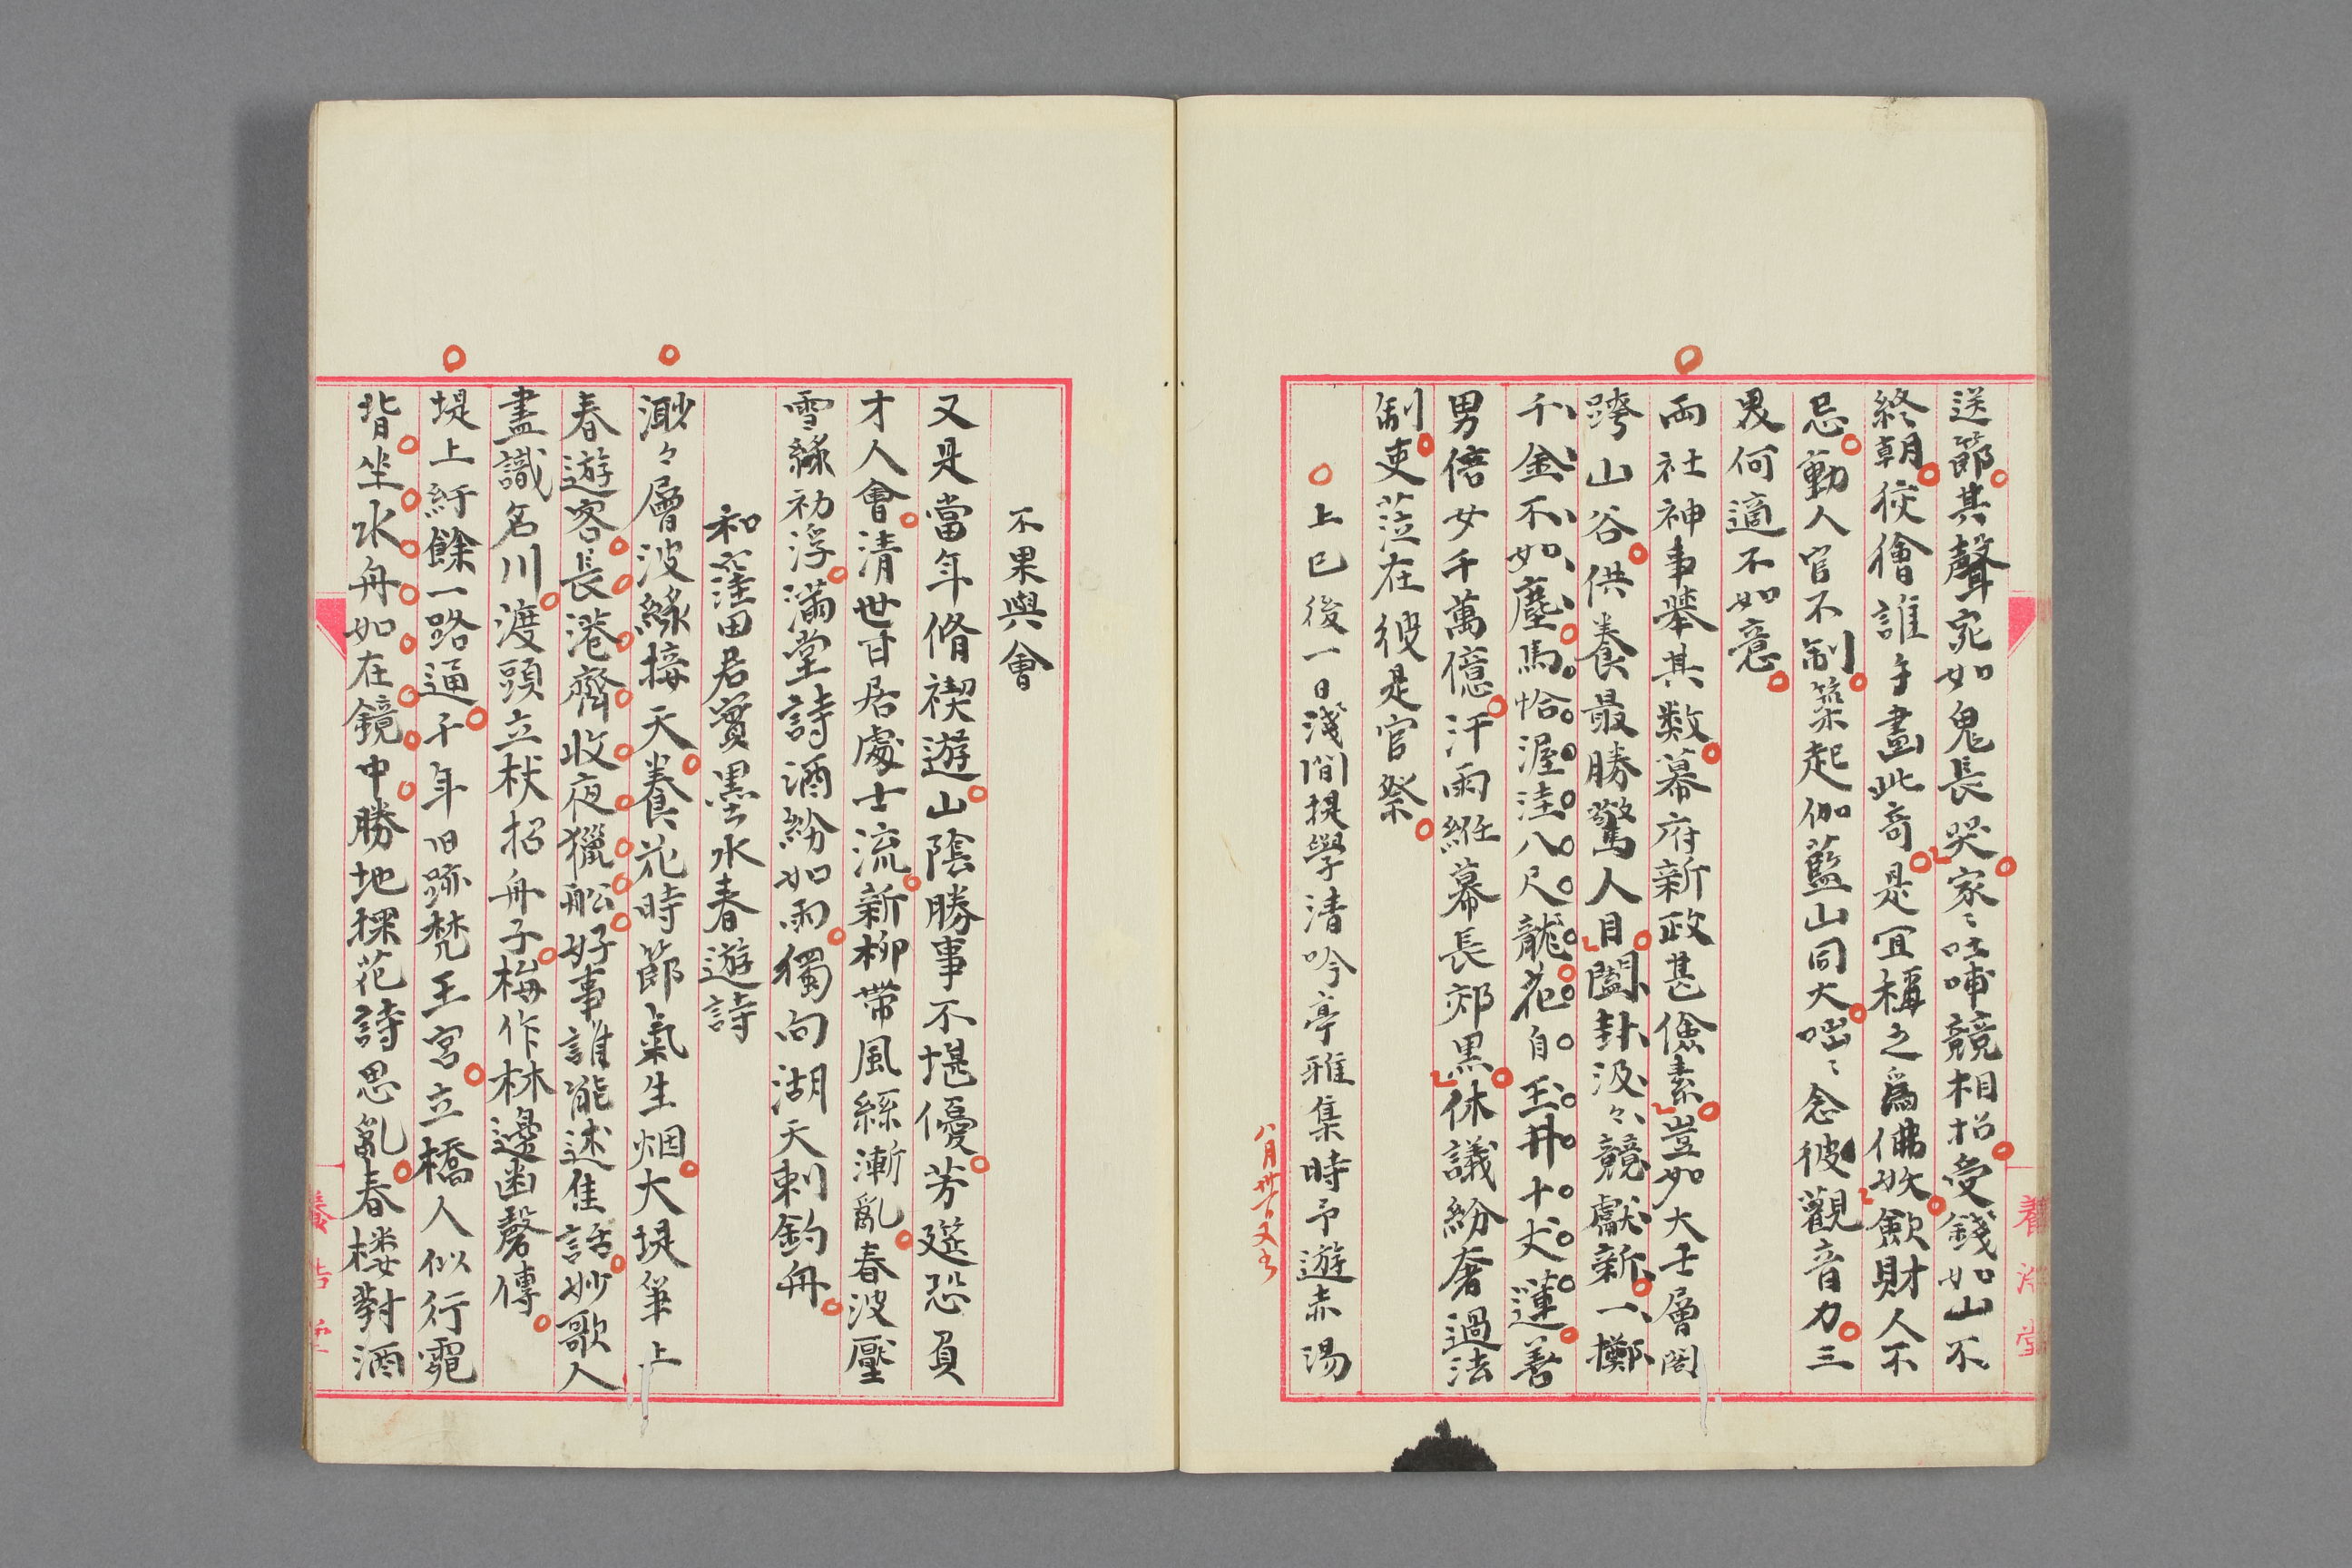 送節其聲宛如鬼長哭家〻吐哺競相招受錢如山不
終朝狡獪誰乎畫此奇是宜稱之為佛妖歛財人不
忌動人官不制築起伽藍山同大咄〻念彼觀音力三
畏何適不如意
両社神事舉其数幕府新政甚儉素豈如大士層閣
跨山谷供養最勝驚人目闔卦汲々競獻新一擲
千金不如塵馬恰渥洼八尺龍花自玉井十丈蓮善
男倍女千萬億汗雨繼幕長郊黒休議紛奢過法
制吏莅在彼是官祭
上巳後一日淺間提學清吟亭雅集時予遊赤湯
八月卅一日又書
不果與會
又是當年脩禊遊山陰勝事不堪優芳筵恐負
才人會清世甘居處士流新柳帶風絲漸亂春波壓
雪綠初浮滿堂詩酒紛如雨獨向湖天刺釣舟
和窪田君實墨水春遊詩
渺々層波綠接天養花時節氣生烟大堤筆上
春遊客長港齊收夜獵舩好事誰能述佳話妙歌人
盡識名川渡頭立杖招舟子梅作林邊幽磬傳
堤上紆餘一路通千年旧跡梵王宮立橋人似行霓
背坐水舟如在鏡中勝地探花詩思亂春楼對酒